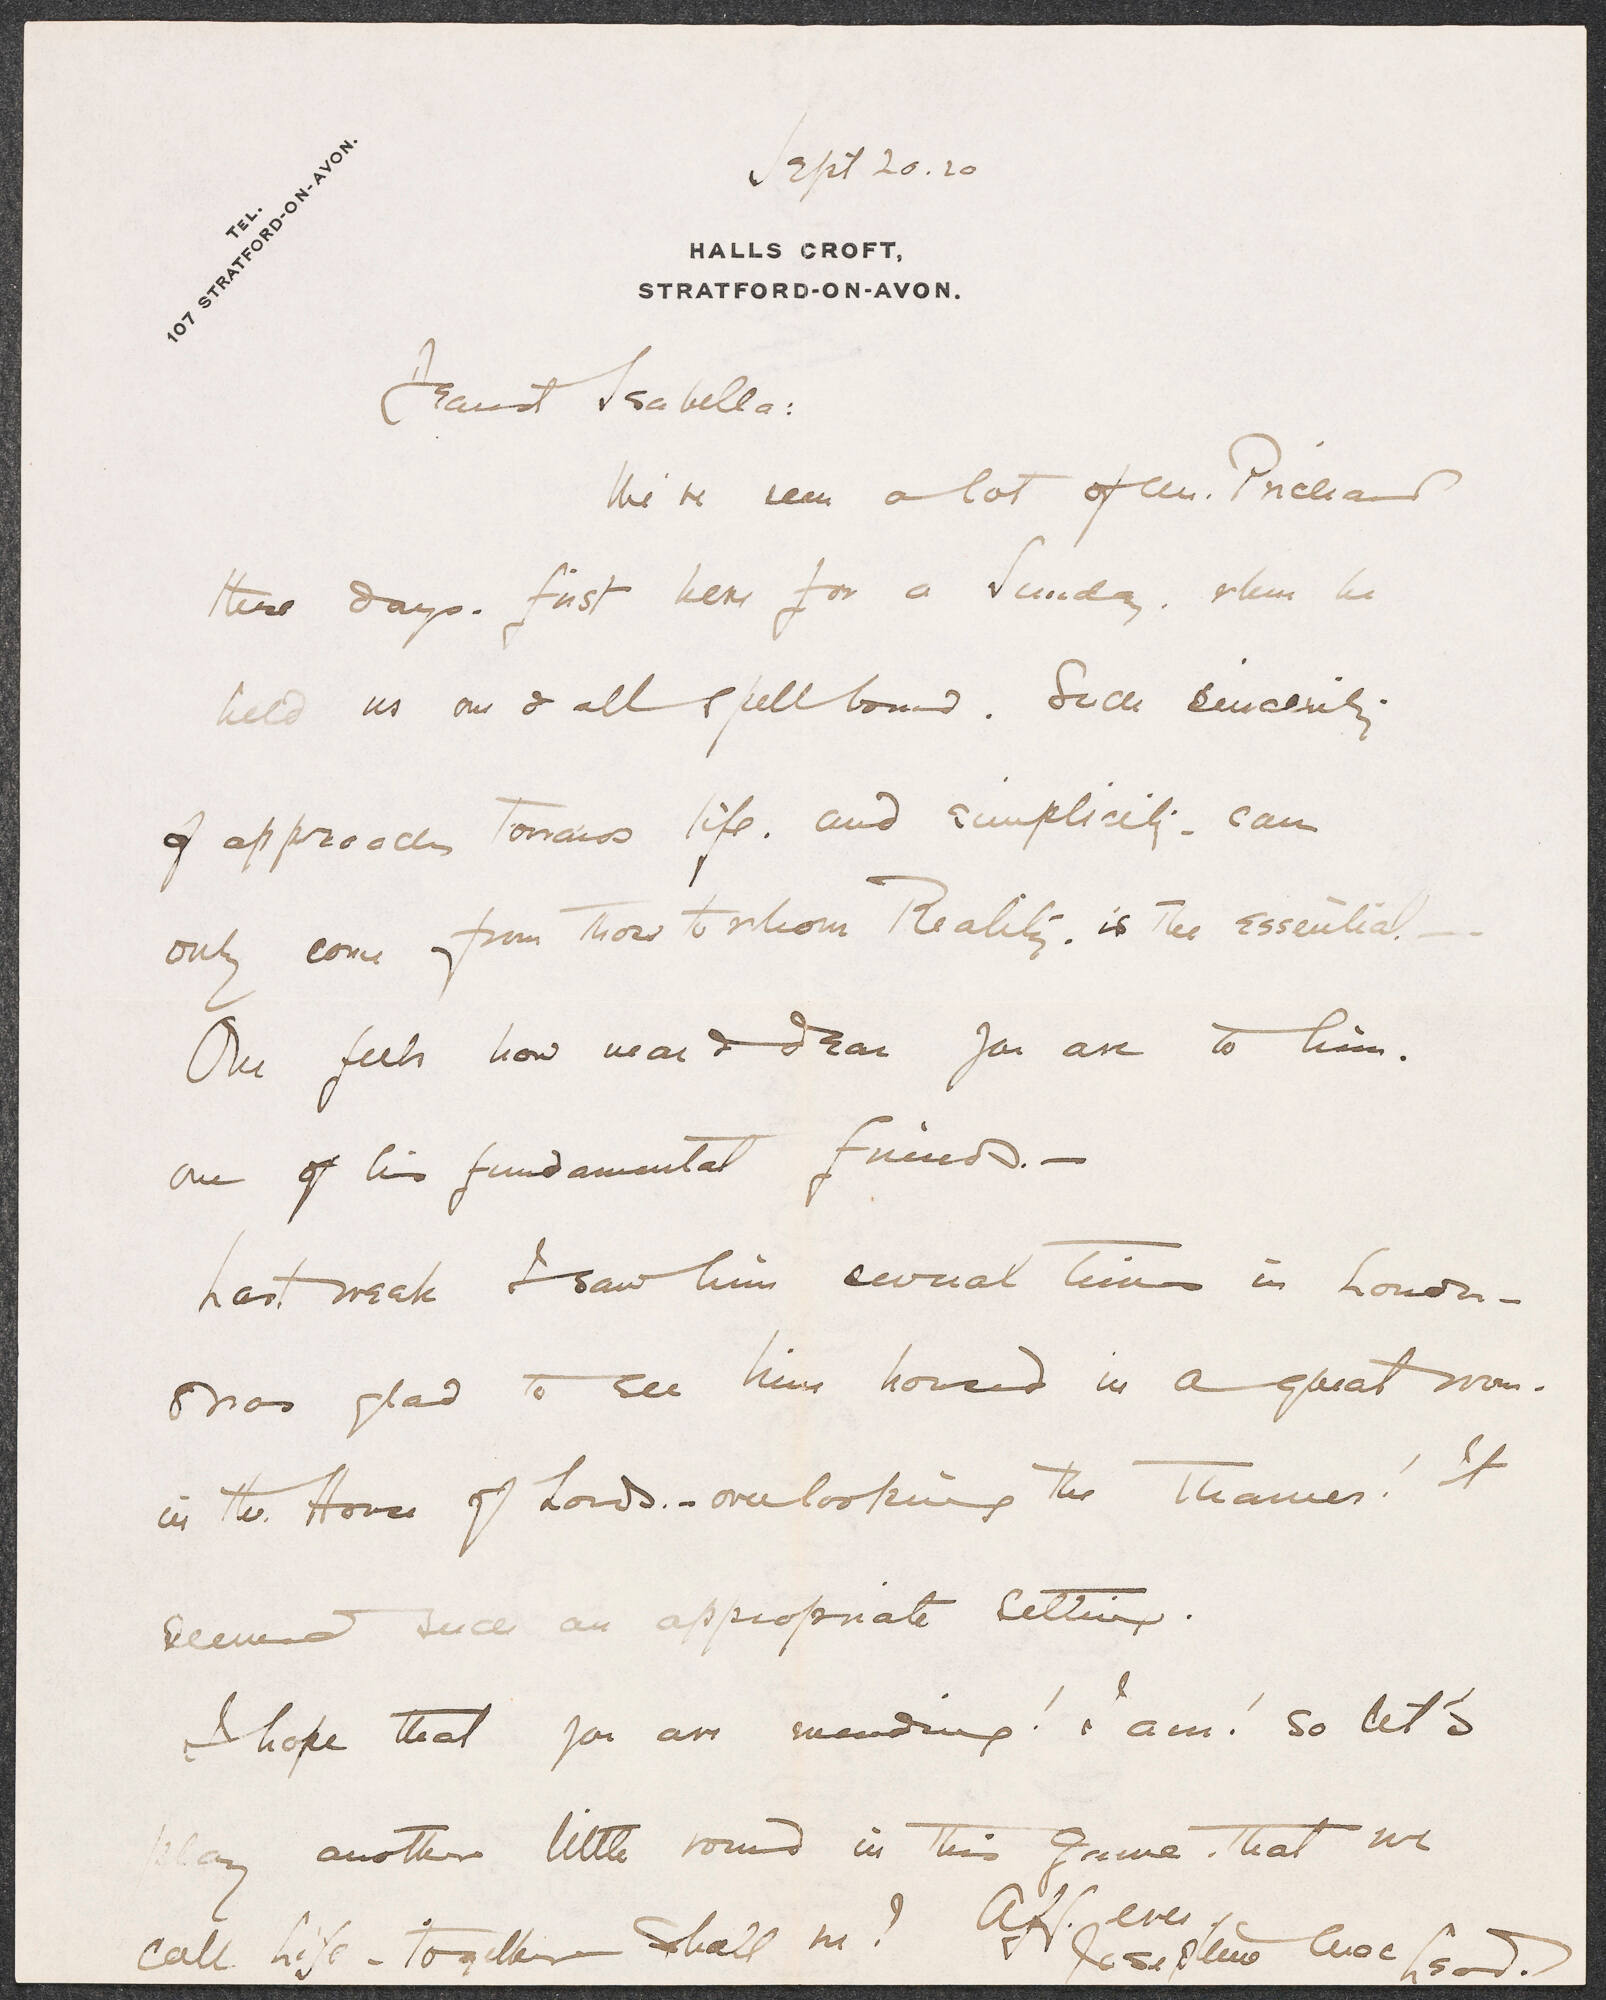 Sept 20.20
TEL.
107 STRATFORD-ON-AVON.
HALLS CROFT,
STRATFORD-ON-AVON.
Dearest Isabella:
We've seen a lot of Mr. Prichard
these days. first here for a Sunday. when he
held us one & all spellbound. Such sincerity
of approach towards life. and simplicity - can
only come from those to whom Reality. is the essential. —
One feels how near & dear you are to him.
one of his fundamental friends. —
Last week I saw him several times in London -
& was glad to see him housed in a great room.
in the House of Lords. - overlooking the Thames! It
seemed such an appropriate setting.
I hope that you are mending! I am! So let's
play another little round in this game that we
call Life - together shall we? Aff. ever
Josephine MacLeod.